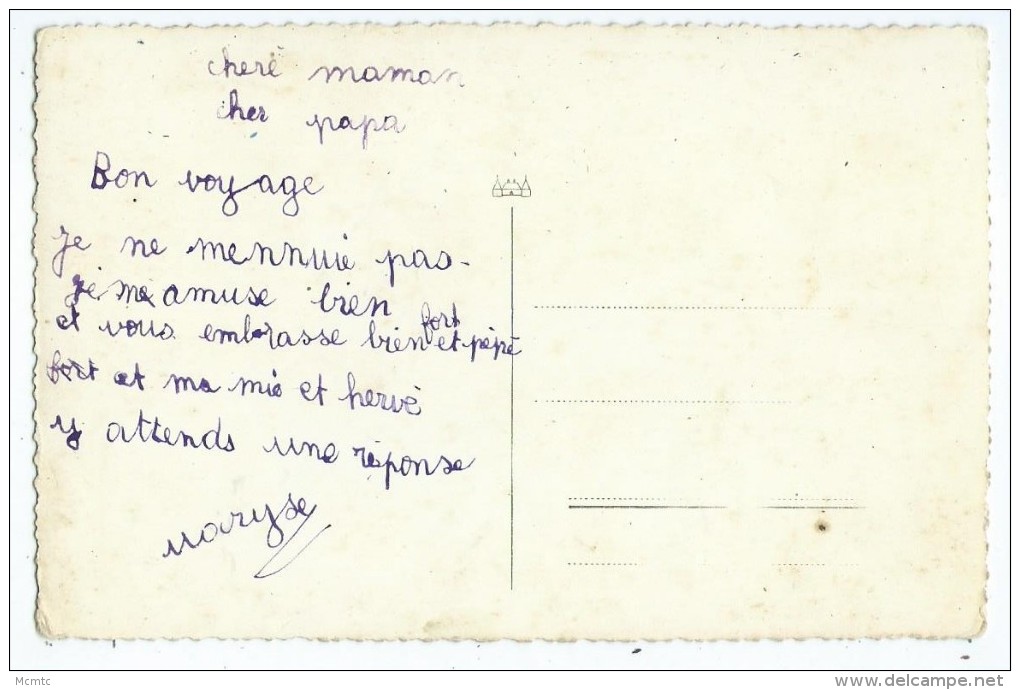 cheré maman
cher papa
Bon voyage
Je ne mennuie pas.
je me amuse bien
et vous embrasse bien fort et pépé
fort et ma mie et hervé
y attends une réponse
maryse
Mcmtc
delcampe.net